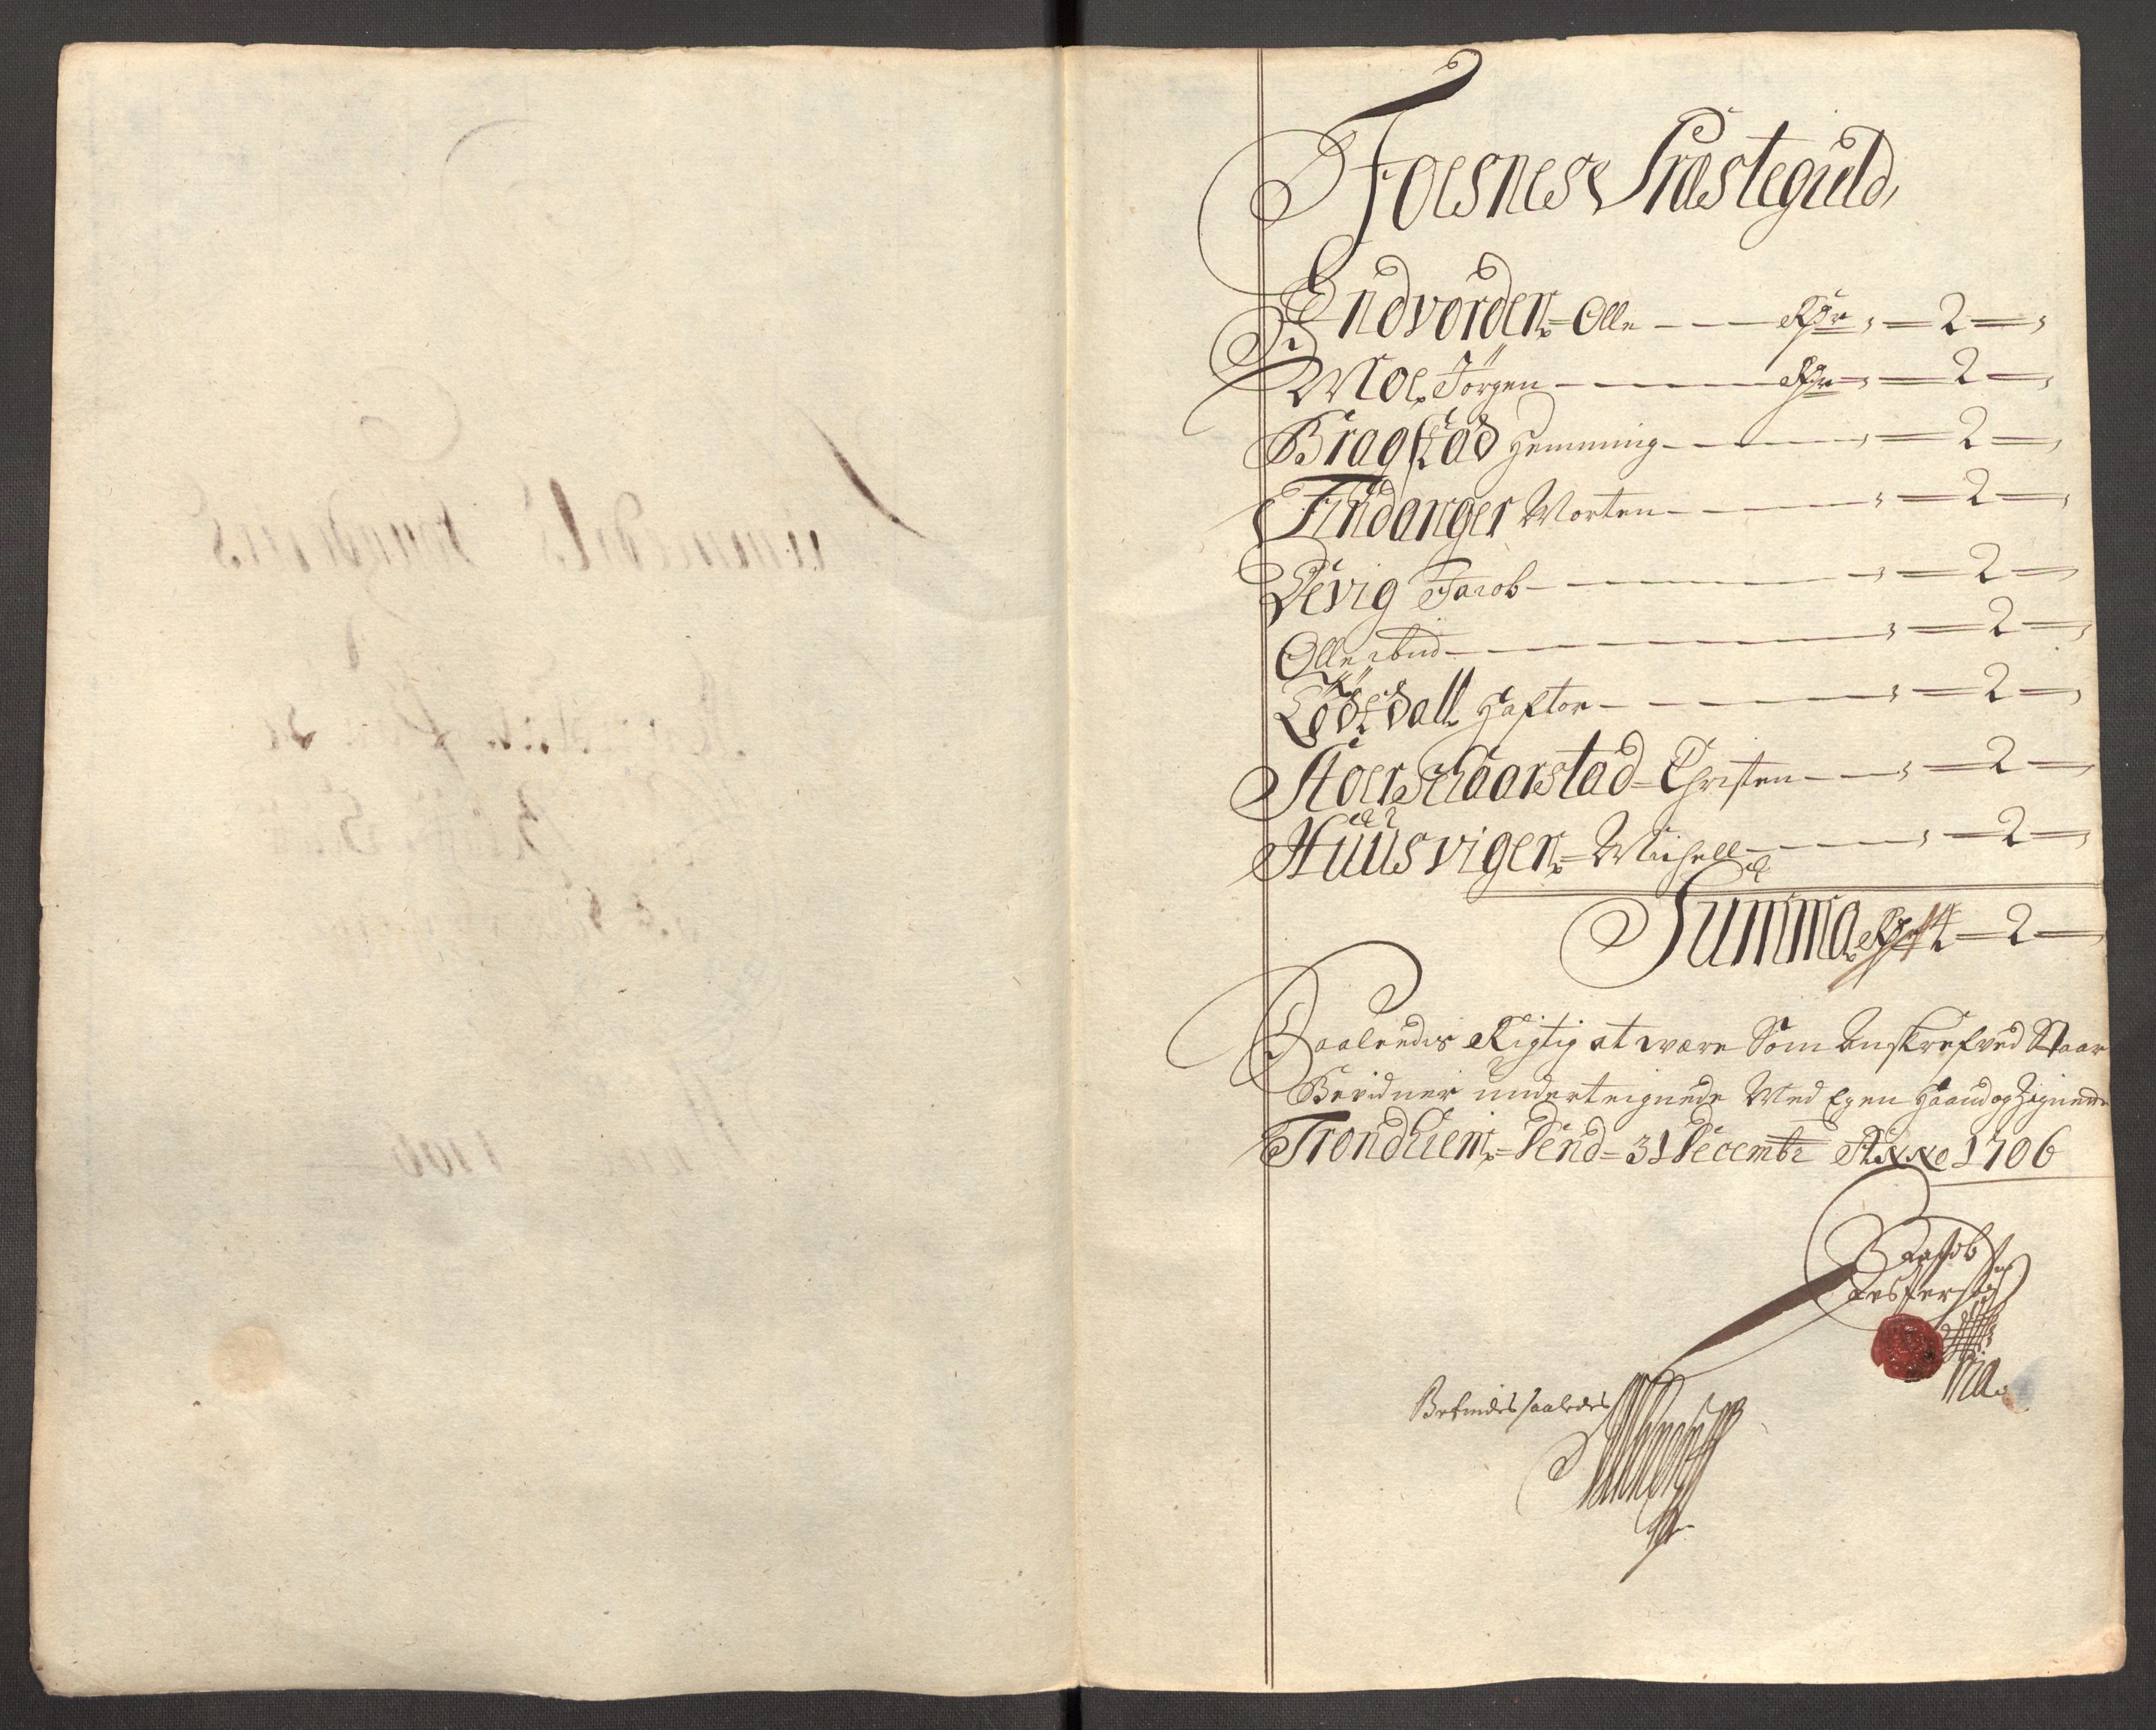 Foesnes Præstegield,
Endvorden Olle — Rdr , — 2 —,
Moe Jörgen — Rdr , — 2 —,
Bragstad Hemming — , — 2 —,
Findanger Morten — , — 2 —,
Devig Jacob — , — 2 —,
Olle ibid — , — 2 —,
Lödtdall Haftor — , — 2 —,
Stoer Schaarstad Christen — , — 2 —,
Huusvigen Michell — , — 2 —,
Summa Rdr 4 — 2 —,
Saaledis Rigtig at være Som Anskrefved Staar
Bevidner underteignede Med Egen Haand og Zignette
Trondhiem Dend 31 Decembr Anno 1706
Befindes saaledes